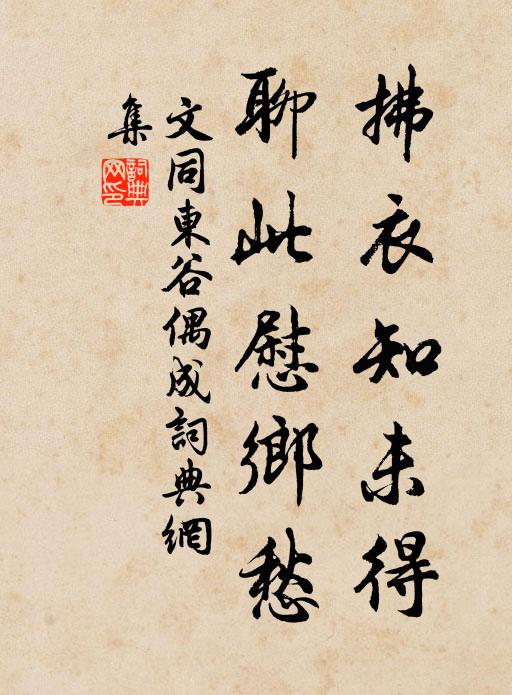 拂衣知未得
聊此慰鄉愁
文同東谷偶成詞典網
集
詞典
網印